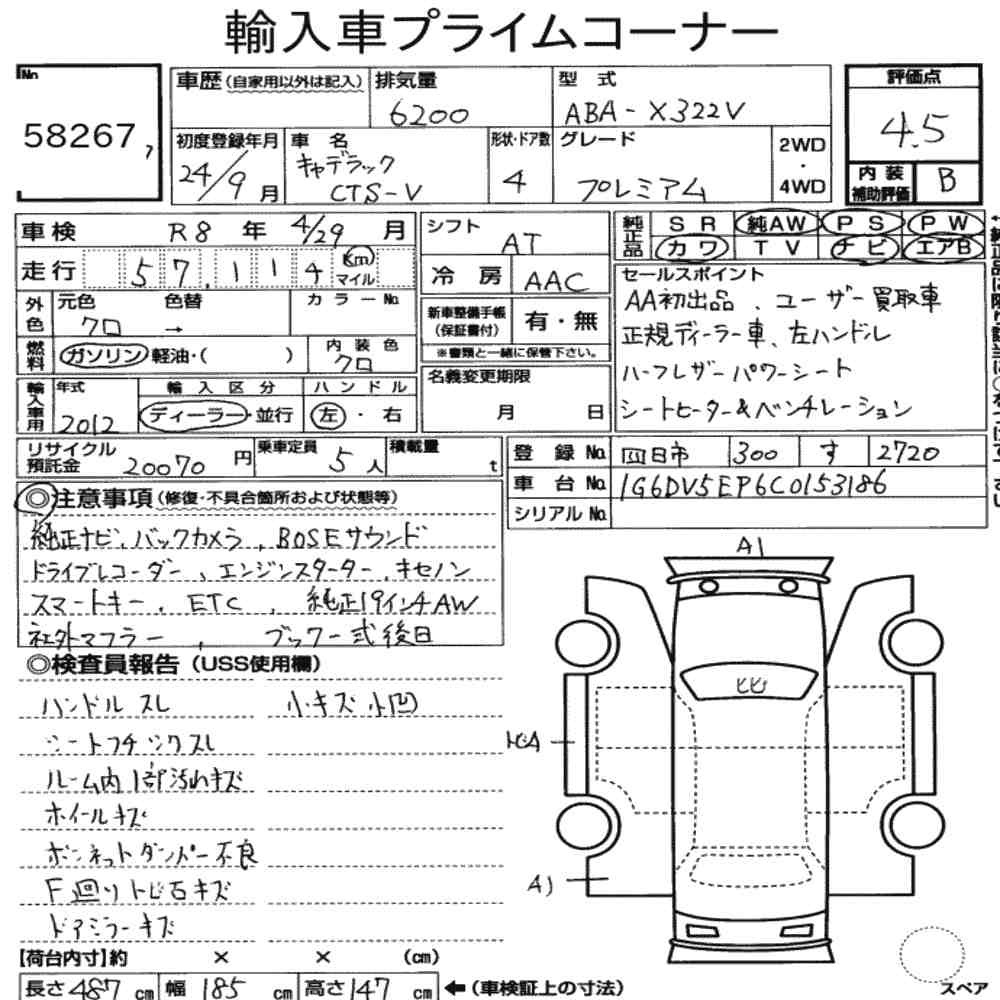 輸入車プライムコーナー
No
58267 7
車歴(自家用以外は記入)
排気量
6200
型 式
ABA-X322V
評価点
4.5
初度登録年月
24/9月
車 名
キャデラック
CTS-V
形状・ドア数
4
グレード
プレミアム
2WD
・
4WD
内 装
補助評価
B
車検 R8年 4/29月
走行 57,114 Km マイル
外色 元色 クロ → 色替 カラーNo.
燃料 ガソリン・軽油・( )
内装色 クロ
輸入車用 年式 2012
輸入区分 ディーラー・並行
ハンドル 左・右
リサイクル預託金 20070円
乗車定員 5人
積載量 t
シフト AT
冷房 AAC
新車整備手帳
(保証書付)
有・無
※書類と一緒に保管下さい。
名義変更期限
月 日
純正品 SR 純AW PS PW
カワ TV ナビ エアB
セールスポイント
AA初出品、ユーザー買取車
正規ディーラー車、左ハンドル
ハーフレザーパワーシート
シートヒーター&ベンチレーション
登録No. 四日市 300 す 2720
車台No. 1G6DV5EP6C0153186
シリアルNo.
◎注意事項(修復・不具合箇所および状態等)
純正ナビ、バックカメラ、BOSEサウンド
ドライブレコーダー、エンジンスターター、キセノン
スマートキー、ETC、純正19インチAW
社外マフラー、ブック一式後日
◎検査員報告(USS使用欄)
ハンドルスレ 小キズ小凹
シートフチシワスレ
ルーム内1部汚れキズ
ホイールキズ
ボンネットダンパー不良
F廻りトビ石キズ
ドアミラーキズ
A1
ヒビ
A1
【荷台内寸】約 × × (cm)
長さ487cm 幅185cm 高さ147cm ←(車検証上の寸法)
スペア